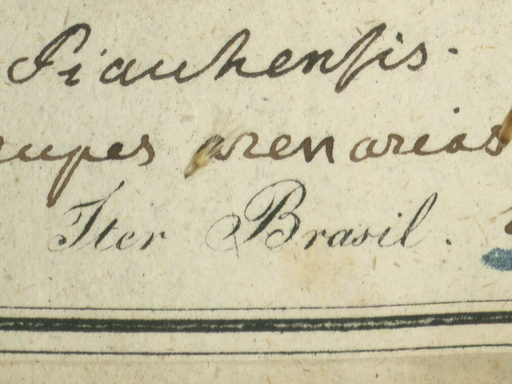 Piauhensis.
rupes arenarias
Iter Brasil.